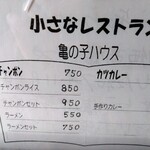 小さなレストラン
亀の子ハウス
チャンポン 750 カツカレー
チャンポンライス 850
チャンポンセット 950 手作りカレー
ラーメン 550
ラーメンセット 750